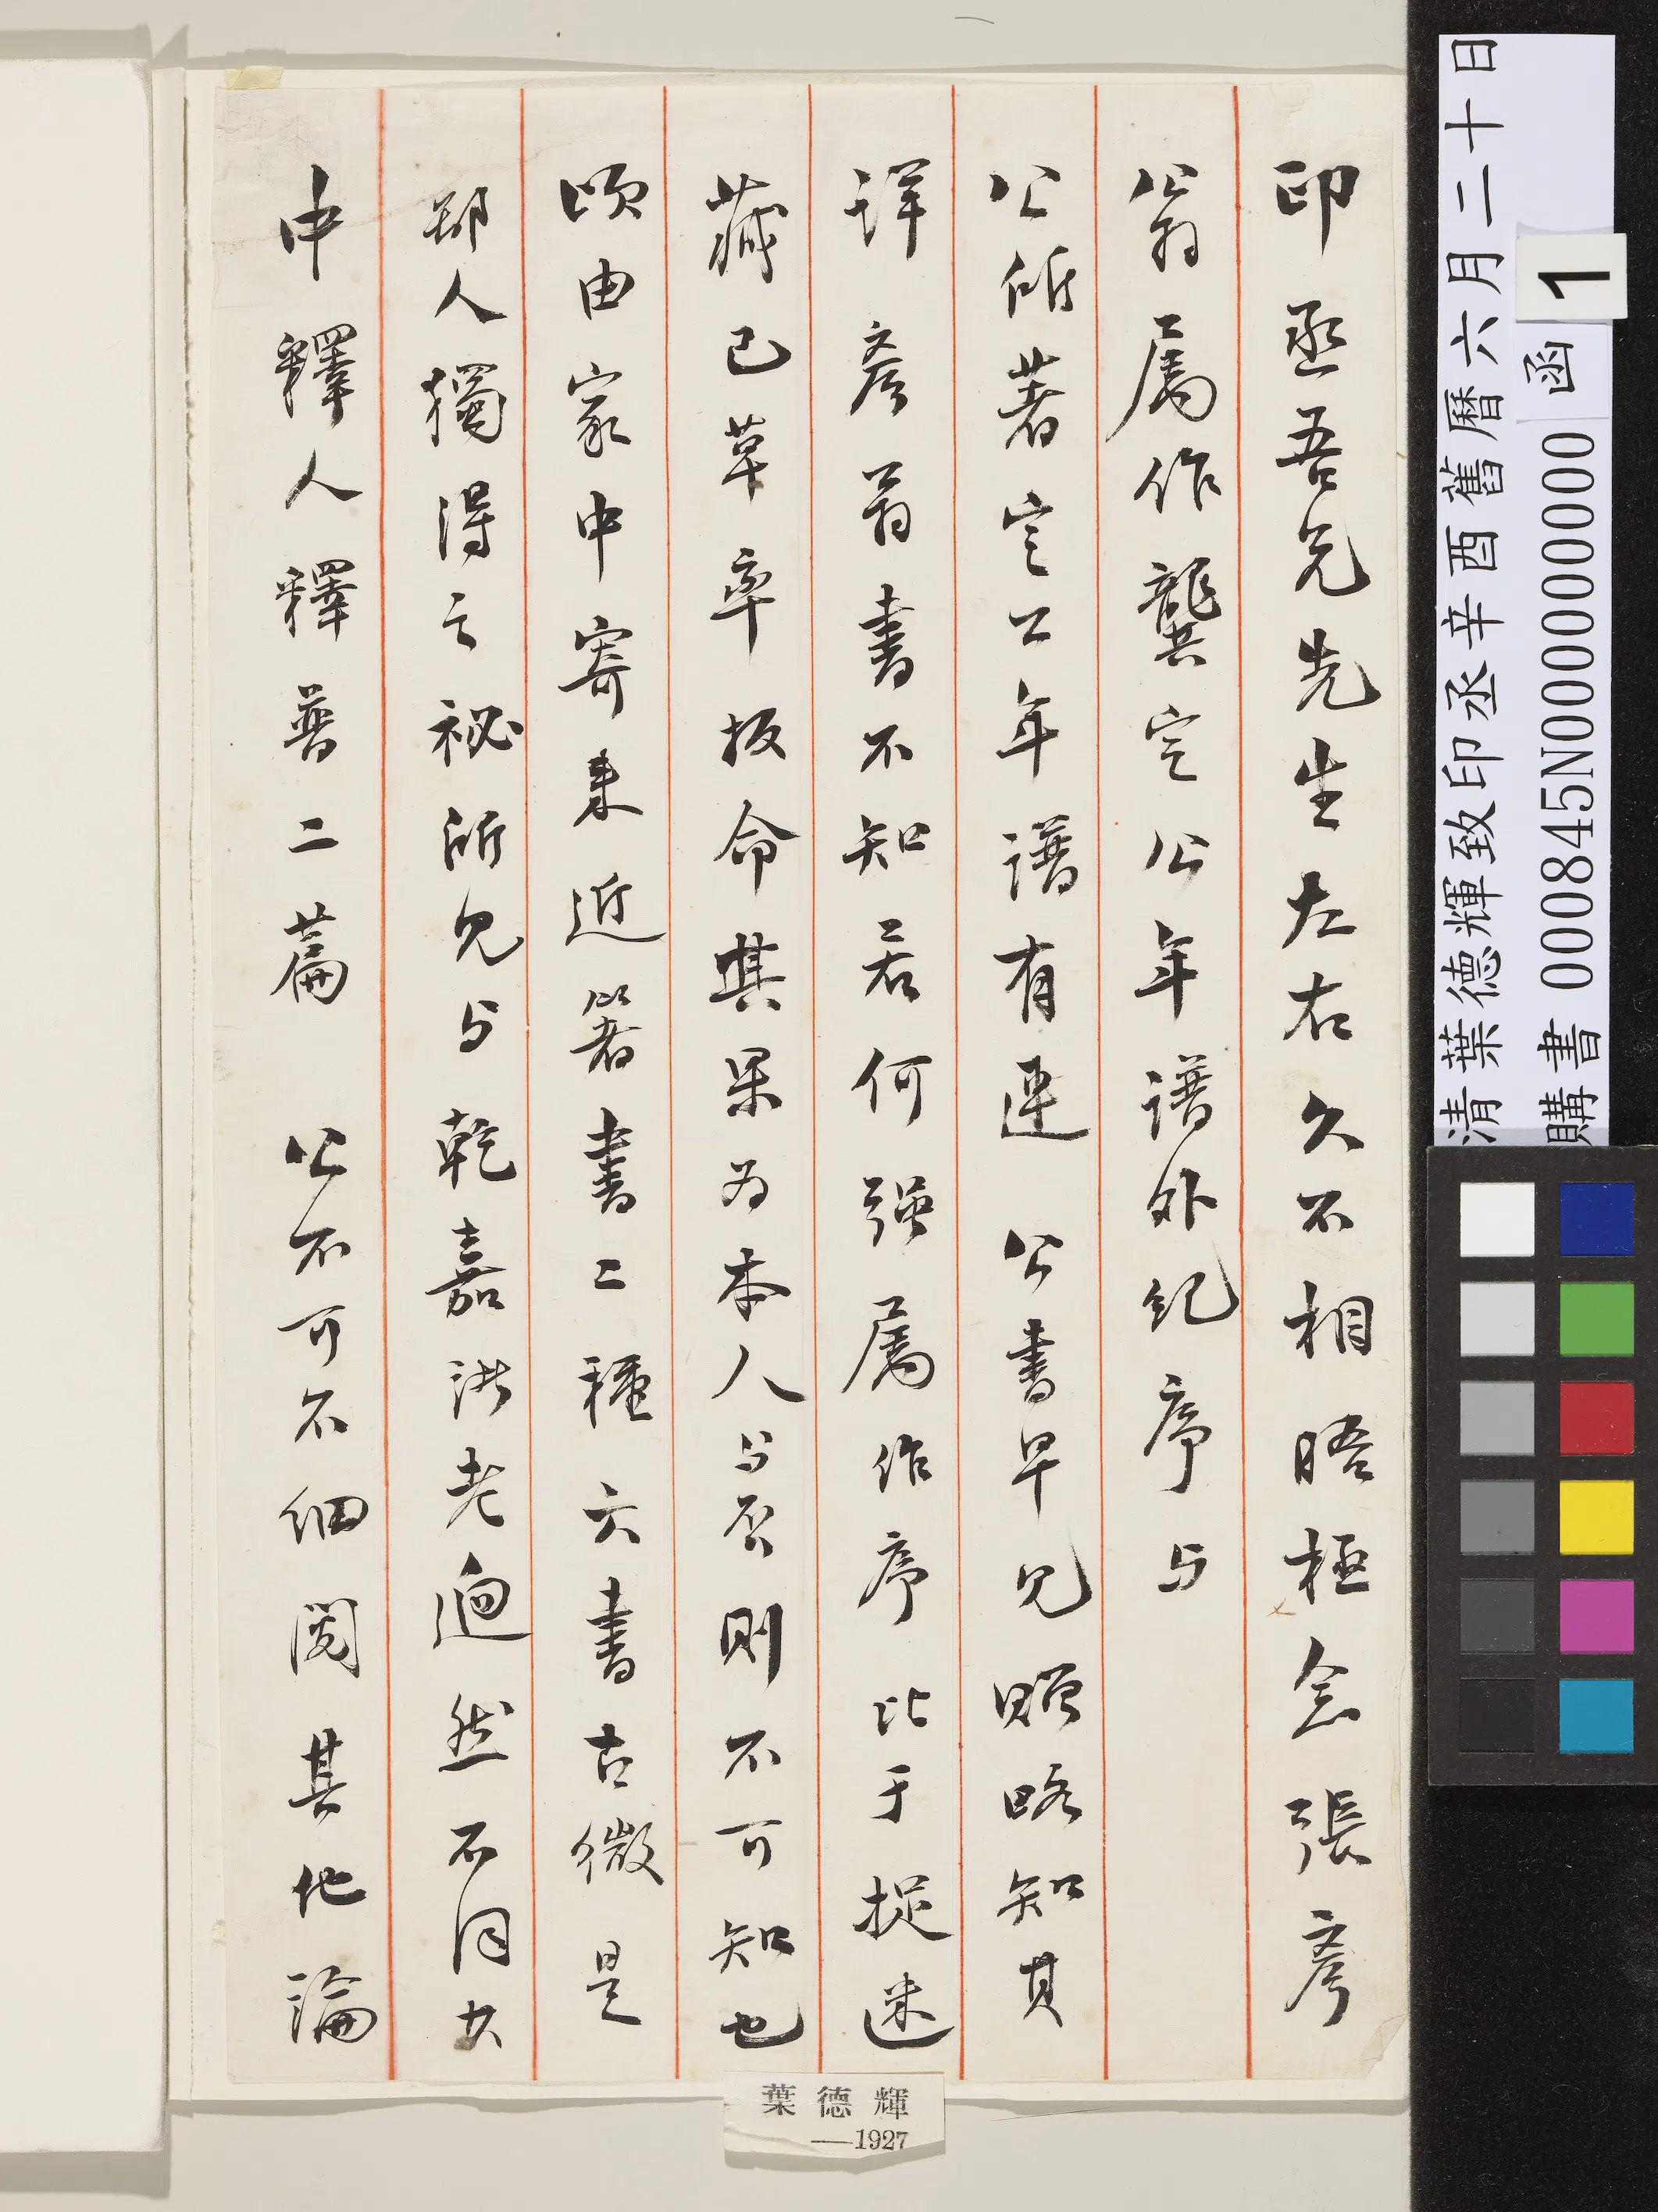 印丞吾兄先生左右久不相晤極念張彥
翁屬作龔定公年譜外紀序与
公所著定公年譜有連　公書早見贈略知其
詳彥翁書不知若何強屬作序比于捉迷
藏已草率报命其果為本人与否則不可知也
頃由家中寄来近箸書二種六書古微是
鄙人獨得之祕所見与乾嘉諸老迥然不同其
中釋人釋普二篇　公不可不細閱其他論
葉德輝
—1927
清葉德輝致印丞辛酉舊曆六月二十日
購書 000845N000000000 函 1